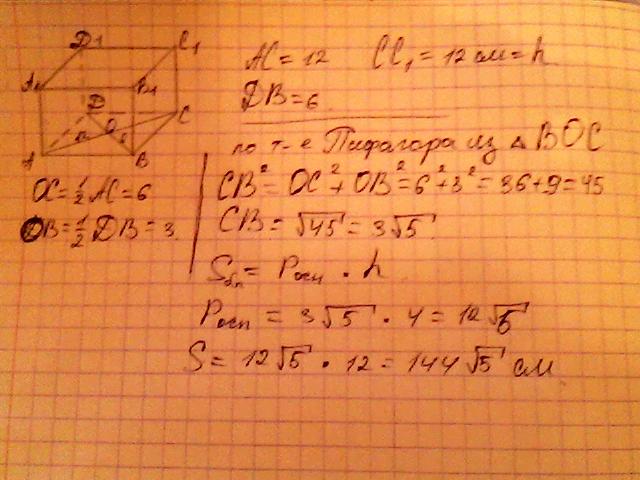 D1 C1
A1 B1
D
O C
A B
AC = 12 CC₁ = 12 см = h
DB = 6
по т-е Пифагора из △ BOC
OC = 1/2 AC = 6
OB = 1/2 DB = 3
CB² = OC² + OB² = 6² + 3² = 36 + 9 = 45
CB = √45 = 3√5
Sбп = Pосн · h
Pосн = 3√5 · 4 = 12√5
S = 12√5 · 12 = 144√5 см